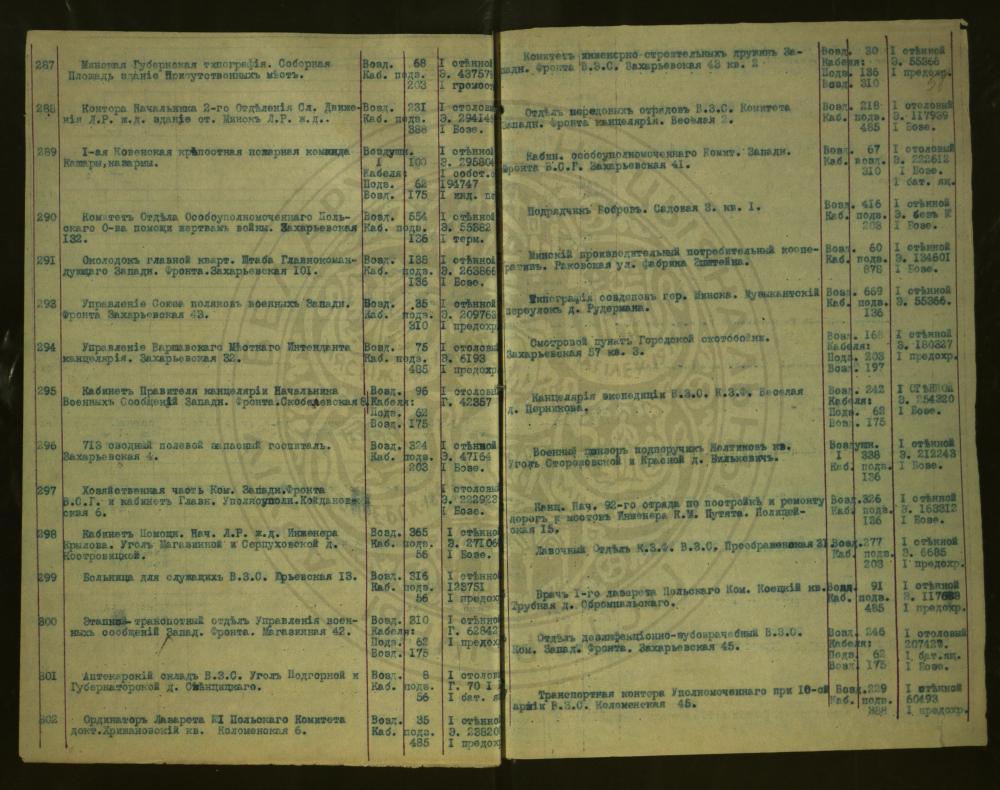 287 Минская Губернская типографія. Соборная Возд. 68 I стѣнной
Площадь зданіе Присутственныхъ мѣстъ. Каб. подз. Э. 43757
203 I громоот
288 Контора Начальника 2-го Отдѣленія Сл. Движе- Возд. 231 I столовы
нія Л.Р. ж.д. зданіе ст. Минск Л.Р. ж.д.. Каб. подз. Э. 29414
388 I Бозе.
289 I-ая Ковенская крѣпостная пожарная команда Воздушн. I стѣнной
Кашары, казармы. I 100 Э. 295804
Кабеля: I собст.
Подз. 62 194747
Возд. 175 I инд.
290 Комитетъ Отдѣла Особоуполномоченнаго Поль- Возд. 554 I стѣнной
скаго О-ва помощи жертвамъ войны. Захарьевская Каб. подз. Э. 55382
132. 136 I терм.
291 Околодокъ главной кварт. Штаба Главнокоман- Возд. 138 I стѣнной
дующаго Западн. Фронта. Захарьевская 101. Каб. подз. Э. 263866
136 I Бозе.
293 Управленіе Союза поляковъ военныхъ Западн. Возд. 35 I стѣнной
Фронта Захарьевская 43. Каб. подз. Э. 209763
310 I предохр
294 Управленіе Варшавскаго Мѣстнаго Интенданта Возд. 75 I столовы
канцелярія. Захарьевская 32. Каб. подз. Э. 6193
485 I предохр
295 Кабинетъ Правителя канцеляріи Начальника Возд. 96 I столовы
Военныхъ Сообщеній Западн. Фронта. Скобелевская 8. Кабеля: Г. 42357
Подз. 62
Возд. 175
296 713 сводный полевой запасный госпиталь. Возд. 324 I стѣнной
Захарьевская 4. Каб. подз. Э. 47164
203 I Бозе.
297 Хозяйственная часть Ком. Западн. Фронта I столовы
В.С.Г. и кабинетъ Главн. Уполкоуполн. Койдановс- Э. 222923
ская 6. I Бозе.
298 Кабинетъ Помощн. Нач. Л.Р. ж.д. Инженера Возд. 365 I стѣнно
Крылова. Уголъ Магазинной и Серпуховской д. Каб. подз. Э. 27106
Костровицкой. 56 I Бозе.
299 Больница для служащихъ В.З.С. Юрьевская 13. Возд. 316 I стѣнно
Каб. подз. 123751
56 I предох
300 Этапно-транспортный отдѣлъ Управленія воен- Возд. 210 I стѣнно
ныхъ сообщеній Запад. Фронта. Магазинная 42. Кабеля: Г. 62842
Подз. 62 I предох
Возд. 175
301 Аптекарскій складъ В.З.С. Уголъ Подгорной и Возд. 8 I столов
Губернаторской д. Каб. подз. Г. 70 I
56 I бат. я
302 Ординаторъ Лазарета Польскаго Комитета Возд. 35 I стѣнно
докт. Хржановскій кв. Коломенская 6. Каб. подз. Э. 23820
485 I предох
Комитетъ инженерно-строительныхъ дружинъ За- Возд. 30 I стѣнной
падн. Фронта В.З.С. Захарьевская 43 кв. 2 Кабеля: Э. 55366
Подз. 136 I предохр.
Возд. 310
Отдѣлъ передовыхъ отрядовъ В.З.С. Комитета Возд. 218 I столовый
Западн. Фронта канцелярія. Веселая 2. Каб. подз. Э. 117939
485 I Бозе.
Кабин. особоуполномоченнаго Комит. Западн. Возд. 67 I столовый
Фронта В.С.Г. Захарьевская 41. Каб. возд. Э. 222612
310 I Бозе.
I бат. ящ.
Подрядчикъ Бобровъ. Садовая 3. кв. 1. Возд. 416 I стѣнной
Каб. подз. Э. безъ №
203 I Бозе.
Минскій производительный потребительный коопе- Возд. 60 I стѣнной
ративъ. Раковская ул. фабрика Эпштейна. Каб. подз. Э. 134601
878 I Бозе.
Типографія созданов гор. Минска. Музыкантскій Возд. 669 I стѣнной
переулокъ д. Рудермана. Каб. подз. Э. 55366.
136
Смотровой пунктъ Городской скотобойни. Возд. 168 I стѣнной
Захарьевская 57 кв. 3. Кабеля: Э. 180327
Подз. 203 I предохр.
Возд. 197
Канцелярія экспедиціи В.З.С. К.З.Ф. Веселая Возд. 242 I СТѢННОЙ
д. Перникова. Кабеля: Э. 254320
Подз. 62 I Бозе.
Возд. 175
Военный цензоръ подпоручикъ Желтиковъ кв. Воздушн. I стѣнной
Уголъ Сторожовской и Красной д. Вилькевичъ. I 338 Э. 212243
Каб. подз. I Бозе.
136
Канц. Нач. 92-го отряда по постройкѣ и ремонту Возд. 326 I стѣнной
дорогъ и мостовъ Инженера К.И. Путята. Полицей- Каб. подз. Э. 163312
ская 15. 136 I Бозе.
Лавочный Отдѣлъ К.З.Ф. В.З.С. Преображенская 21. Возд. 277 I стѣнной
Каб. подз. Э. 6685
203 I предохр.
Врачъ 1-го лазарета Польскаго Ком. Косцкій кв. Возд. 91 I стѣнной
Трубная д. Обромпальскаго. Каб. подз.
485 I предохр.
Отдѣлъ дезинфекціонно-зубоврачебный В.З.С. Возд. 246 I столовый
Ком. Запад. Фронта. Захарьевская 45. Кабеля: 207423.
Подз. 62 I бат. ящ.
Возд. 175 I Бозе.
Транспортная контора Уполномоченнаго при 10-ой Возд. 229 I стѣнной
арміи В.З.С. Коломенская 45. Каб. подз. 60493
388 I предохр.